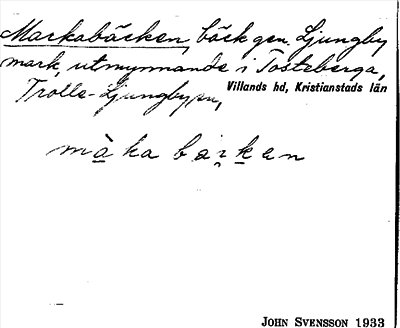 Markabäcken, bäck gen. Ljungby
mark, utmynnande i Tosteberga,
Trolle-Ljungby sn,
Villands hd, Kristianstads län
JOHN SVENSSON 1933